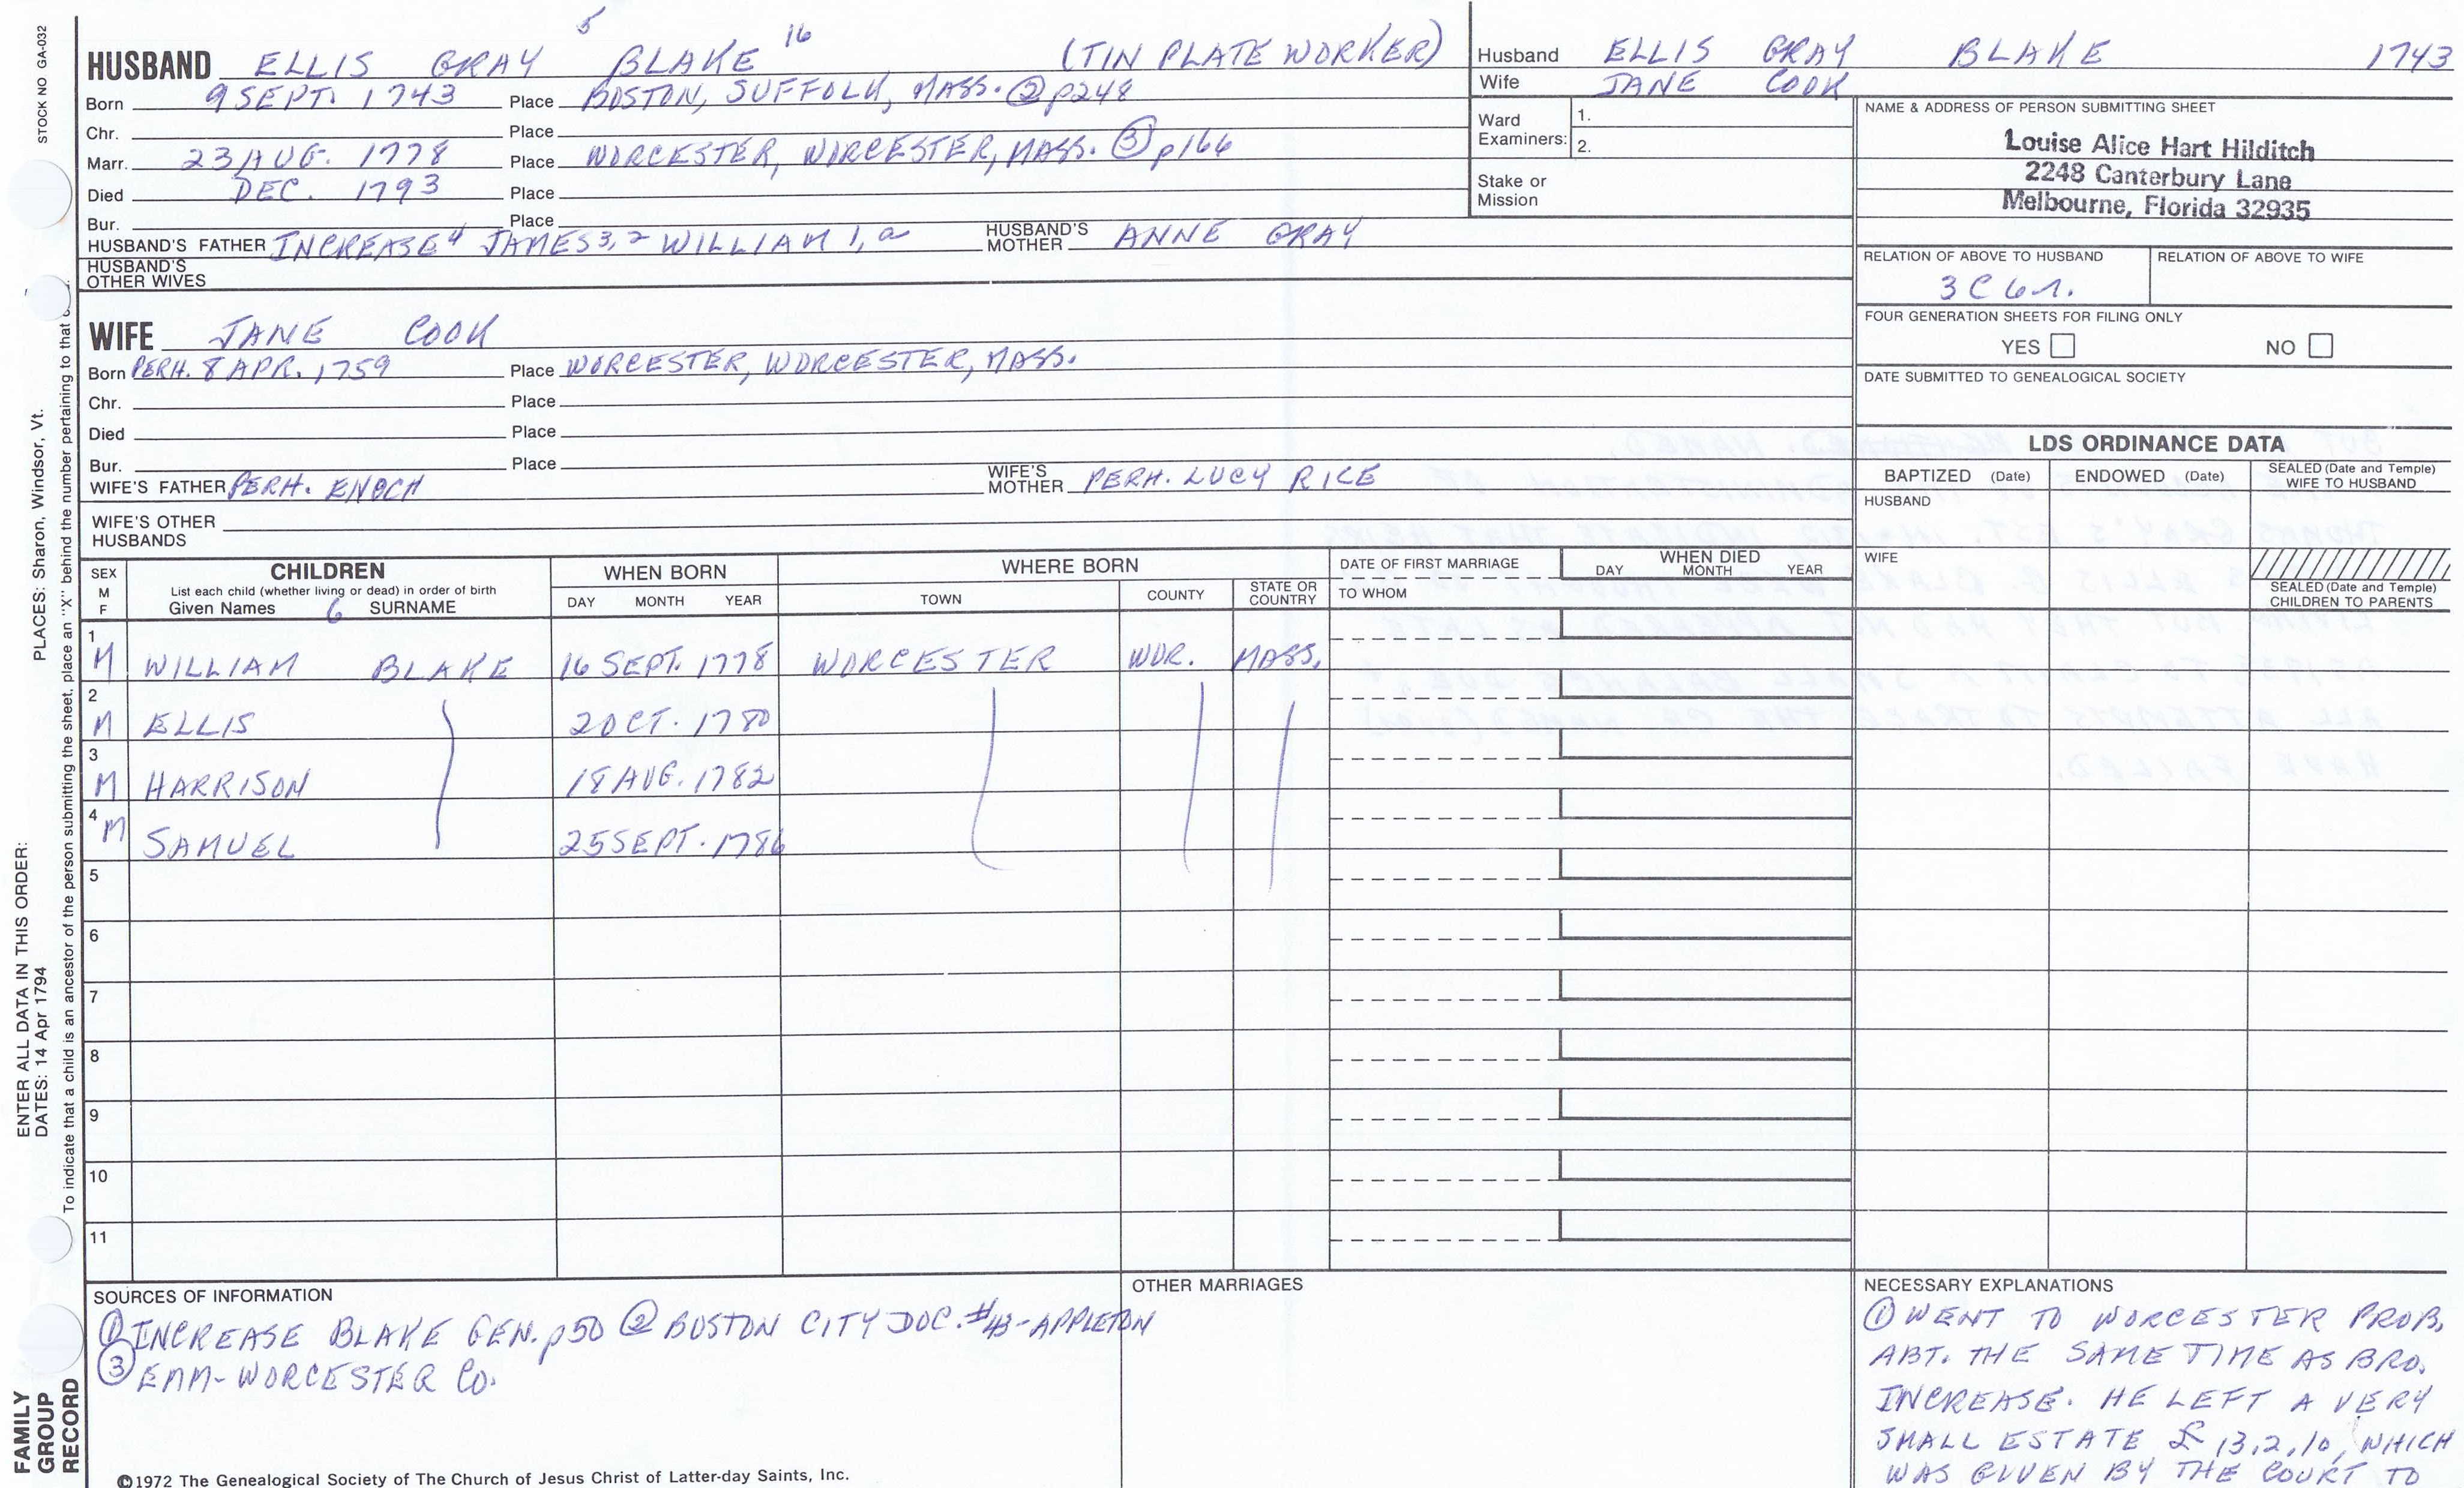 STOCK NO GA-032
PLACES: Sharon, Windsor, Vt.
ENTER ALL DATA IN THIS ORDER:
DATES: 14 Apr 1794
To indicate that a child is an ancestor of the person submitting the sheet, place an "X" behind the number pertaining to that
FAMILY GROUP RECORD
HUSBAND ELLIS GRAY 5 BLAKE 16 (TIN PLATE WORKER)
Born 9 SEPT. 1743 Place BOSTON, SUFFOLK, MASS. ② p248
Chr. Place
Marr. 23 AUG. 1778 Place WORCESTER, WORCESTER, MASS. ③ p166
Died DEC. 1793 Place
Bur. Place
HUSBAND'S FATHER INCREASE 4 JAMES 3, 2 WILLIAM 1, a HUSBAND'S MOTHER ANNE GRAY
HUSBAND'S OTHER WIVES
WIFE JANE COOK
Born PERH. 8 APR. 1759 Place WORCESTER, WORCESTER, MASS.
Chr. Place
Died Place
Bur. Place
WIFE'S FATHER PERH. ENOCH WIFE'S MOTHER PERH. LUCY RICE
WIFE'S OTHER HUSBANDS
Husband ELLIS GRAY BLAKE 1743
Wife JANE COOK
Ward Examiners: 1.
2.
Stake or Mission
NAME & ADDRESS OF PERSON SUBMITTING SHEET
Louise Alice Hart Hilditch
2248 Canterbury Lane
Melbourne, Florida 32935
RELATION OF ABOVE TO HUSBAND RELATION OF ABOVE TO WIFE
3 C 6 r.
FOUR GENERATION SHEETS FOR FILING ONLY
YES NO
DATE SUBMITTED TO GENEALOGICAL SOCIETY
LDS ORDINANCE DATA
BAPTIZED (Date) ENDOWED (Date) SEALED (Date and Temple) WIFE TO HUSBAND
HUSBAND
WIFE
SEALED (Date and Temple) CHILDREN TO PARENTS
SEX M F
CHILDREN
List each child (whether living or dead) in order of birth
Given Names 6 SURNAME
WHEN BORN
DAY MONTH YEAR
WHERE BORN
TOWN COUNTY STATE OR COUNTRY
DATE OF FIRST MARRIAGE
TO WHOM
WHEN DIED
DAY MONTH YEAR
1 M WILLIAM BLAKE 16 SEPT. 1778 WORCESTER WOR. MASS.
2 M ELLIS 2 OCT. 1780
3 M HARRISON 18 AUG. 1782
4 M SAMUEL 25 SEPT. 1786
5
6
7
8
9
10
11
SOURCES OF INFORMATION
① INCREASE BLAKE GEN. p50 ② BOSTON CITY DOC. #43-APPLETON
③ EMM-WORCESTER CO.
©1972 The Genealogical Society of The Church of Jesus Christ of Latter-day Saints, Inc.
OTHER MARRIAGES
NECESSARY EXPLANATIONS
① WENT TO WORCESTER PROB.
ABT. THE SAME TIME AS BRO.
INCREASE. HE LEFT A VERY
SMALL ESTATE £ 13,2,10, WHICH
WAS GIVEN BY THE COURT TO